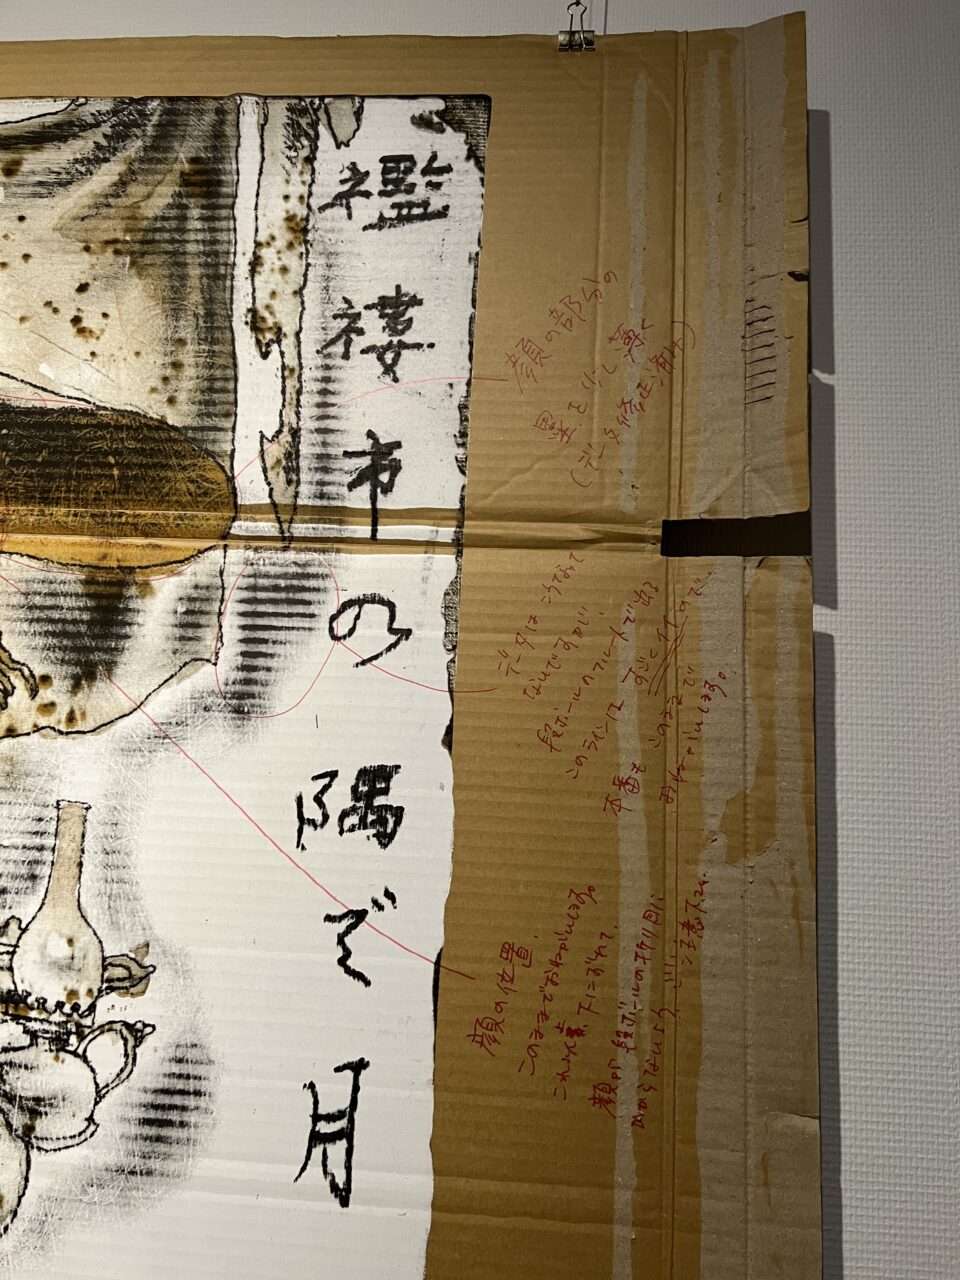 襤褸市の隅で月
顔の部分の
墨を少し薄く
(データ修正済み)
データはこうなって
ないですが、
段ボールのフルートで出る
このラインは すごくイイので、
本番も このままで
おねがいします。
顔の位置、
このままでおねがいします。
これ以上、下にずれて
顔が段ボールの折り目に
かからないように ご注意下さい。